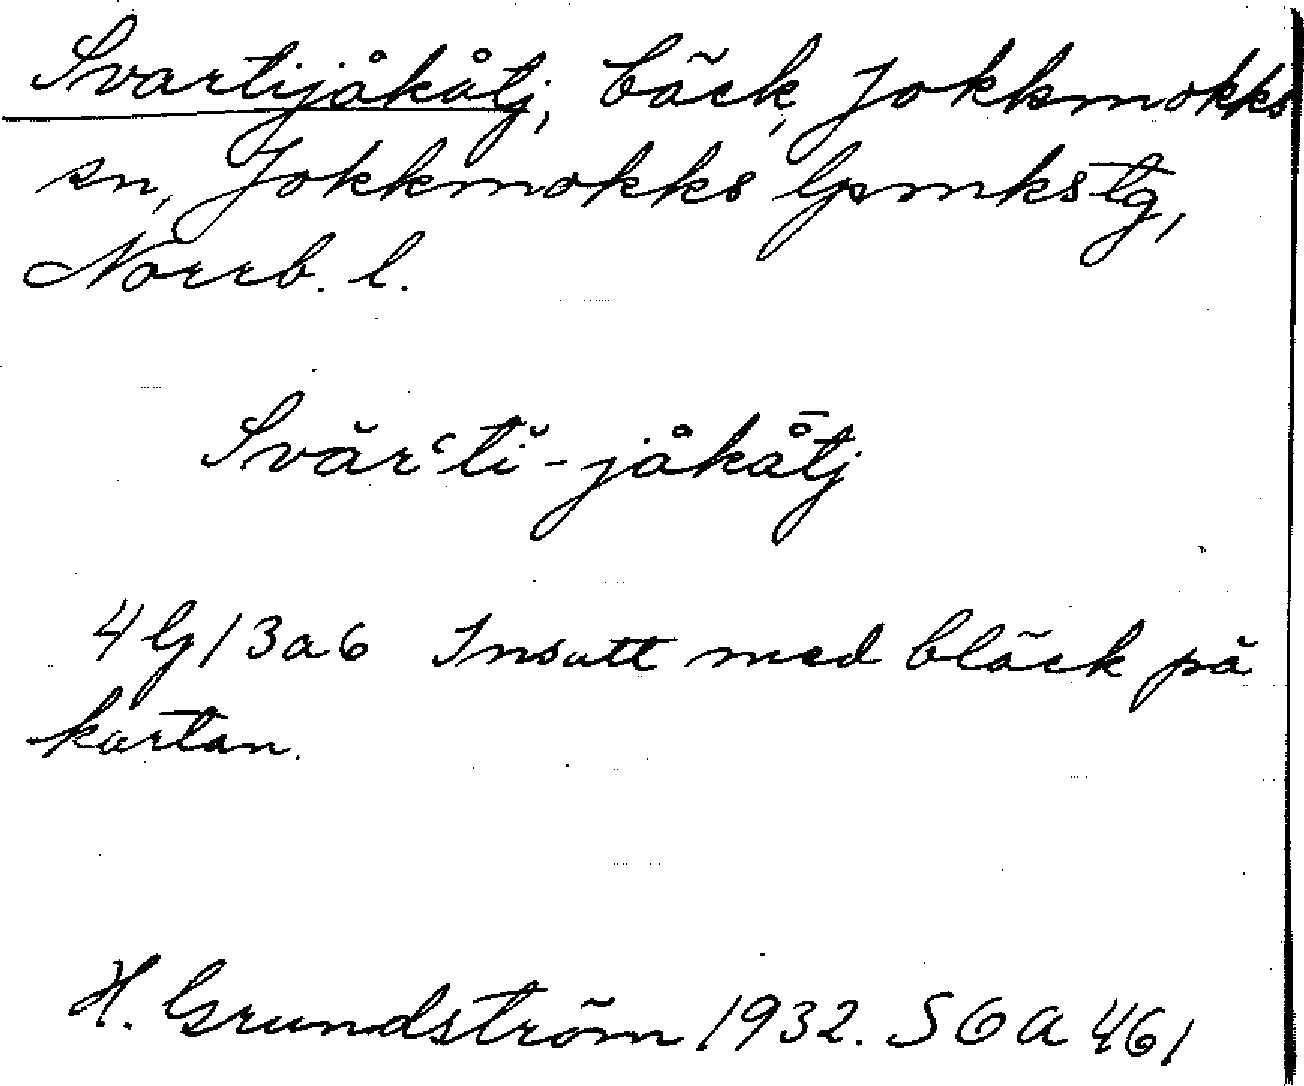 Svartijåkåtj, bäck, Jokkmokks
sn, Jokkmokks lpmkstg,
Norrb. l.
Svăr‘tĭ-jåkå̄tj
4 lg 13a6 Insatt med bläck på
kartan.
H. Grundström 1932. SOA 461